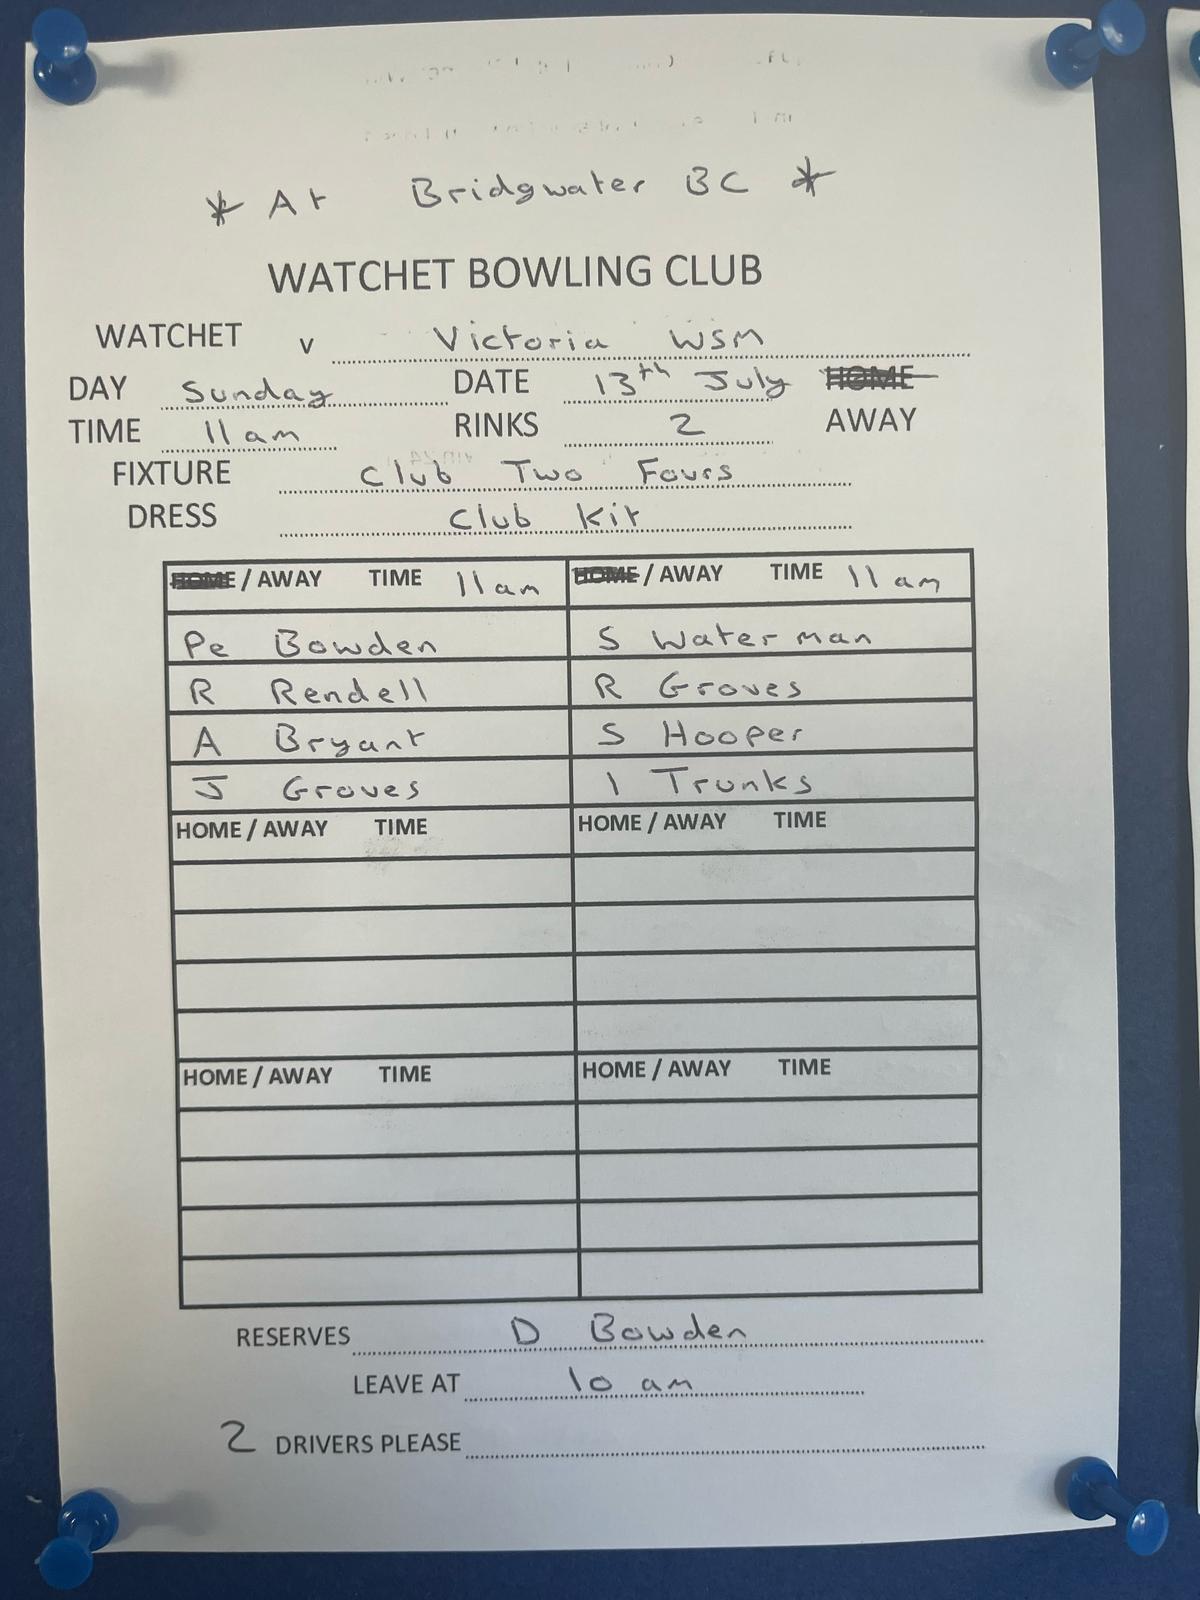 * At Bridgwater BC *
WATCHET BOWLING CLUB
WATCHET v Victoria WSM
DAY Sunday DATE 13th July HOME
TIME 11am RINKS 2 AWAY
FIXTURE Club Two Fours
DRESS Club Kit
HOME / AWAY TIME 11am HOME / AWAY TIME 11am
Pe Bowden S Waterman
R Rendell R Groves
A Bryant S Hooper
J Groves I Trunks
HOME / AWAY TIME HOME / AWAY TIME
HOME / AWAY TIME HOME / AWAY TIME
RESERVES D Bowden
LEAVE AT 10 am
2 DRIVERS PLEASE